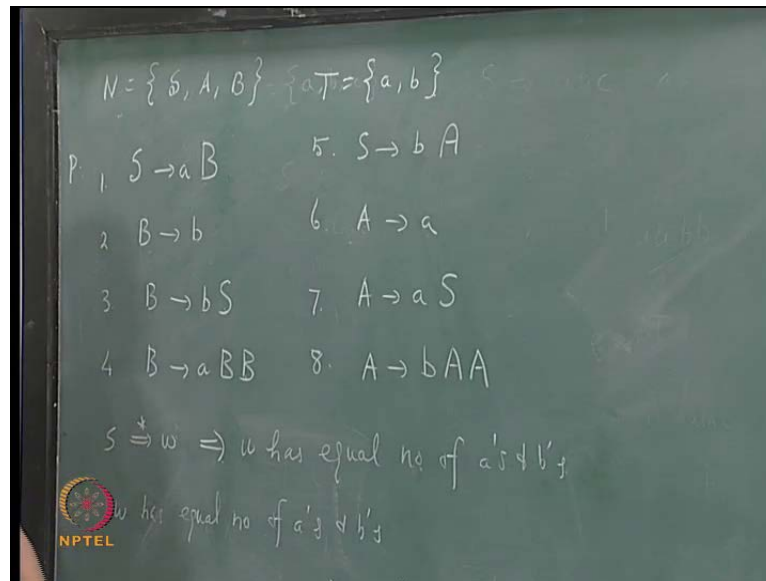 N = { S, A, B } T = { a, b }
P. 1. S → a B 5. S → b A
2 B → b 6. A → a
3. B → b S 7. A → a S
4 B → a B B 8. A → b A A
S ⇒* w ⇒ w has equal no of a's & b's
w has equal no of a's & b's
NPTEL